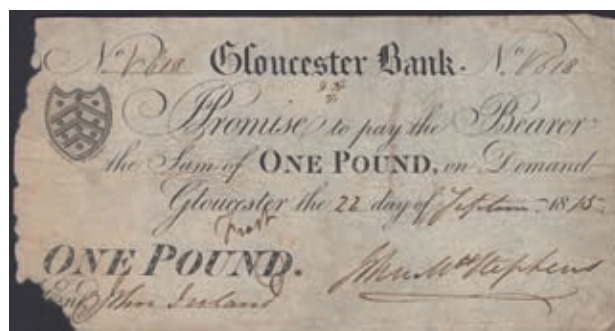 No V618 Gloucester Bank. No V618
I Promise to pay the Bearer
the Sum of ONE POUND, on Demand
Gloucester the 22 day of Septem 1815
ONE POUND.
Entd John Ireland